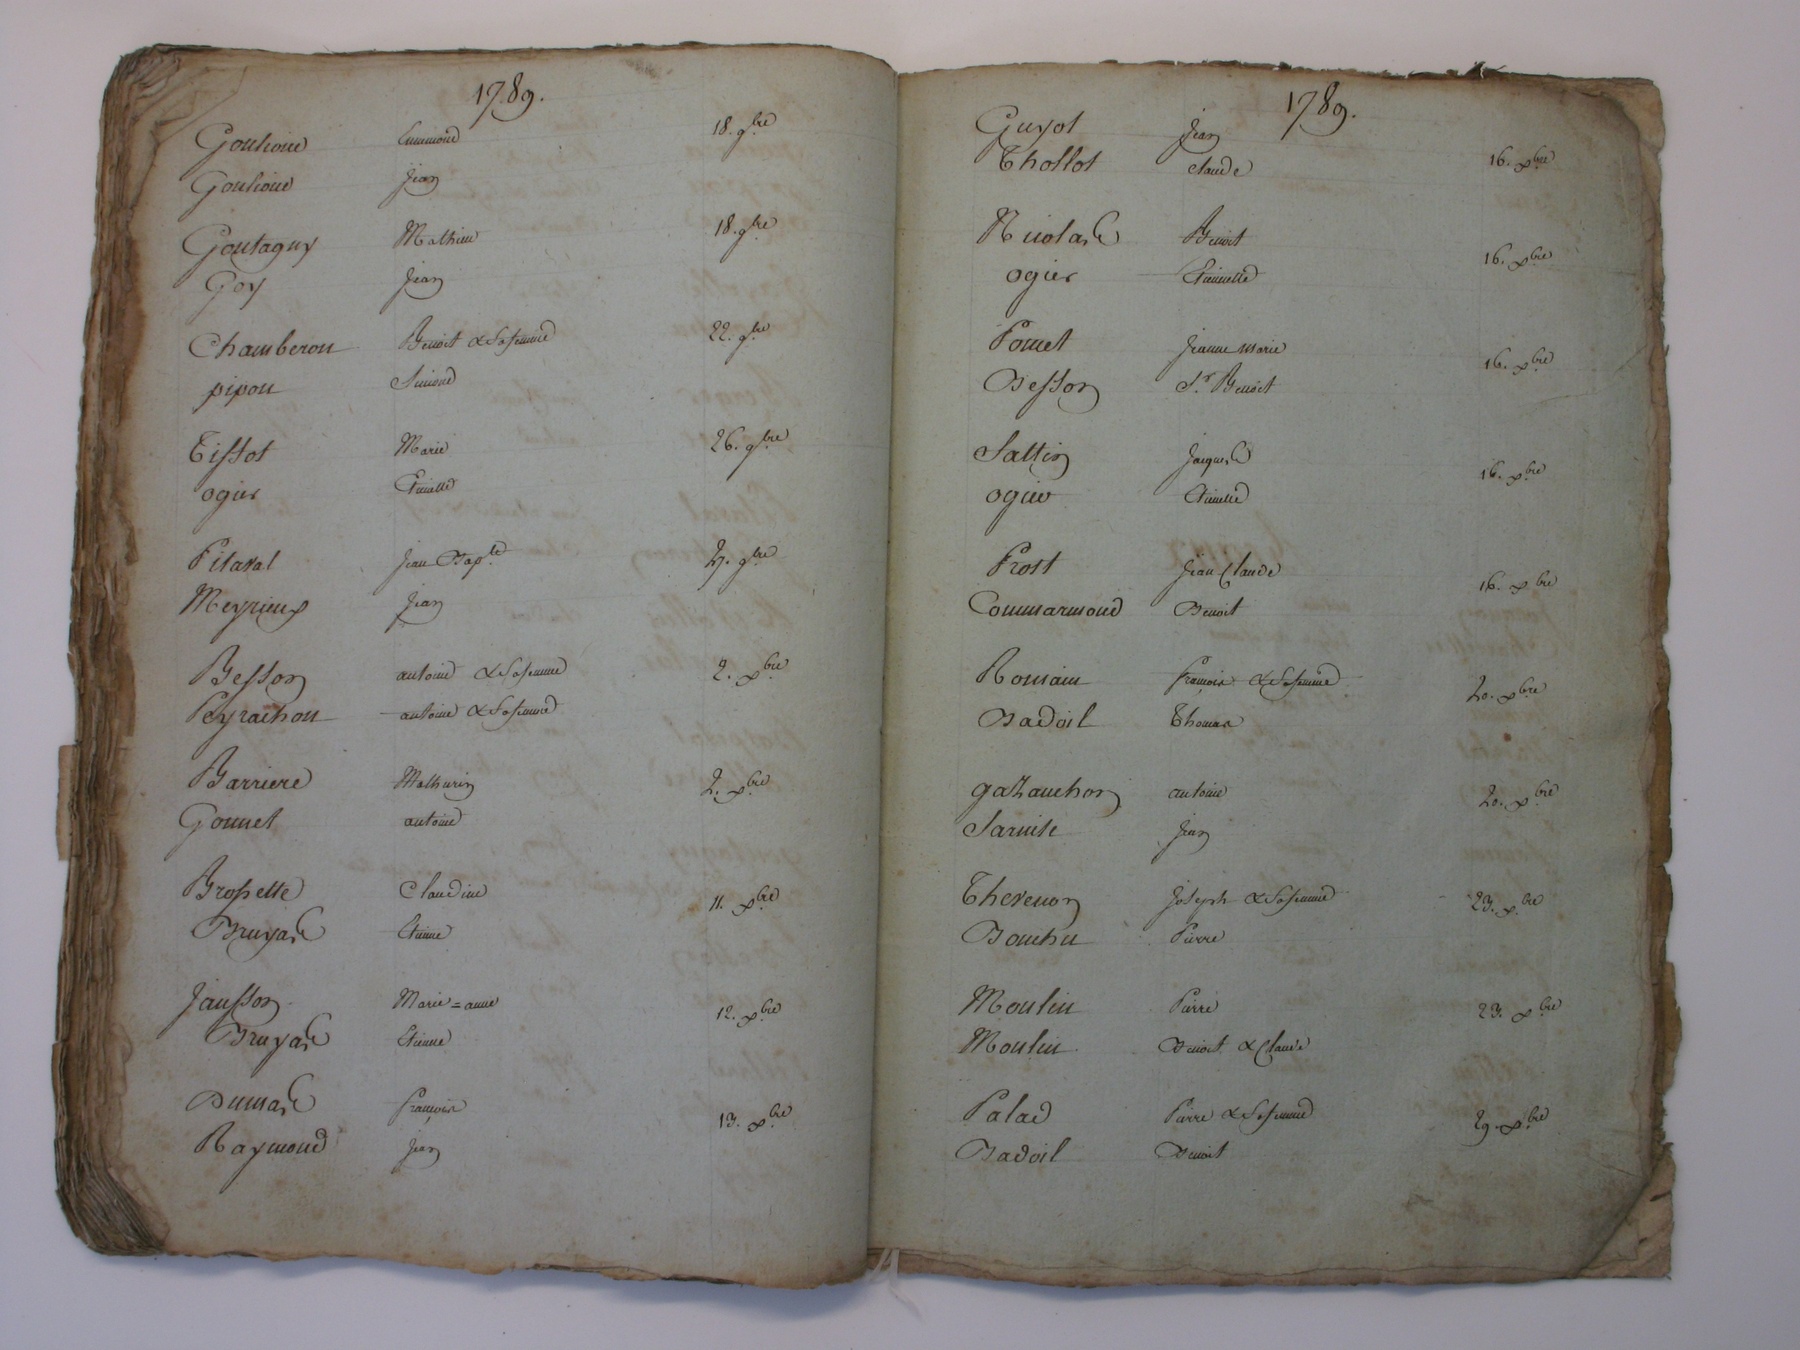 1789.
Goutione Ennemond 18. 9bre
Goutione Jean
Goutagny Mathieu 18. 9bre
Goy Jean
Chamberon Benoit & Sa femme 22. 9bre
pipon Simond
Tissot Marie 26. 9bre
ogier Etiennette
Pitaval Jean Bapte 27. 9bre
Meyrieux Jean
Besson antoine & Sa femme 2. xbre
Peyrachon antoine & Sa femme
Barriere Mathurin 2. xbre
Gonnet antoine
Brossette Claudine 11. xbre
Bruyas Etienne
Jansson Marie=anne 12. xbre
Bruyas Etienne
Dumas François 13. xbre
Raymond Jean
1789.
Guyot Jean
Thollot Claude 16. xbre
Nicolas Benoit
ogier Etiennette 16. xbre
Ponnet Jeanne Marie
Besson Sr. Benoit 16. xbre
Saltin Jacques
ogier Etiennette 16. xbre
Prost Jean Claude
Commarmond Benoit 16. xbre
Romain François & Sa femme 20. xbre
Badoil Thomas
gaZanchon antoine 20. xbre
Jean
Thevenon Joseph & Sa femme 23. xbre
Bouchu Pierre
Moulin Pierre 23. xbre
Moulin Benoit & Claude
Palad Pierre & Sa femme 29. xbre
Badoil Benoit